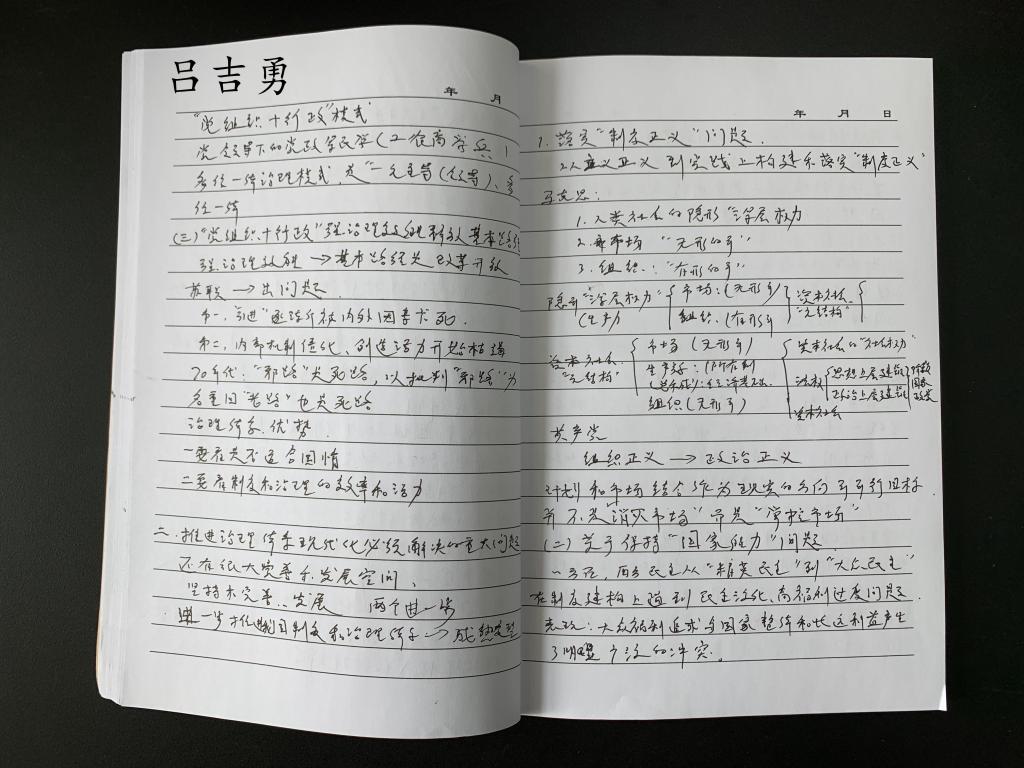 吕吉勇
年 月
"党组织+行政"模式
党领导下的党政军民学(工农商学兵)
多位一体治理模式,是"一元主导(领导)、多
位一体
(三)"党组织+行政"强治理效能释放基本路线
强治理效能→基本路线是改革开放
苏联→出问题
第一,
第二,内部机制僵化、创造活力开始枯竭
70年代:"邪路"是死路,以批判"邪路"为
名重回"老路"也是死路
治理体系优势
一要看是不是适合国情
二要看制度和治理的效率和活力
二.推进治理体系现代化必须解决的重大问题
还存在很大完善和发展空间、
坚持和完善、发展 两个进一步
进一步推进我国制度和治理体系→成熟定型
年 月 日
1.落实"制度正义"问题.
2.从 正义到实践上构建和落实"制度正义"
马克思:
1.人类社会的隐形"深层权力
2.市场 "无形的手"
3.组织:"有形的手"
隐形"深层权力" 市场:(无形手) 资本社会
(生产) 组织:(有形手) "元结构"
资本社会 市场(无形手) 资本社会的"社会权力"
"元结构" 生产关系:(所有制
组织(无形手) 法权 思想上层建筑
政治上层建筑
资本社会
共产党
组织正义→政治正义
计划和市场结合作为现实的方向可可行目标
并不是消灭市场"而是"掌控市场"
(二)关于保持"国家能力"问题.
西方民主从"精英民主"到"大众民主"
在制度建构上遇到民主泛化、高福利过度问题.
大众福利追求与国家整体和长远利益产生
了明显 的冲突。